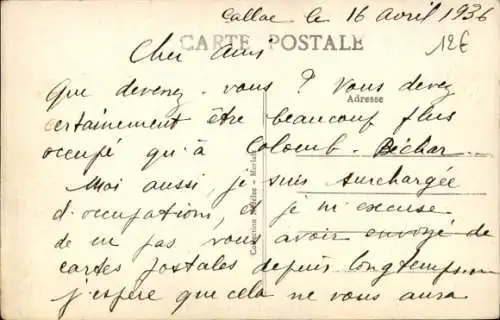 Callac le 16 avril 1936
CARTE POSTALE
12€
Cher Ami
Que devenez-vous ? Vous devez
Adresse
certainement être beaucoup plus
occupé qu'à Colomb-Béchar.
Moi aussi, je suis surchargée
d'occupations, et je m'excuse
de ne pas vous avoir envoyé de
cartes postales depuis longtemps
j'espère que cela ne vous aura
Collection - Morlaix